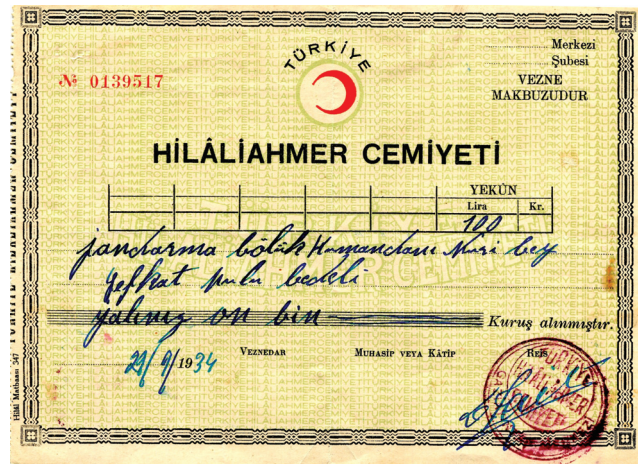 TÜRKİYE
Merkezi
Şubesi
№ 0139517
VEZNE
MAKBUZUDUR
HİLÂLİAHMER CEMİYETİ
YEKÛN
Lira Kr.
100
jandarma bölük Kumandanı Nuri bey
şefkat pulu bedeli
yalınız on bin Kuruş alınmıştır.
29/9/1934 VEZNEDAR MUHASİP VEYA KÂTİP REİS
Hilâl Matbaası 547